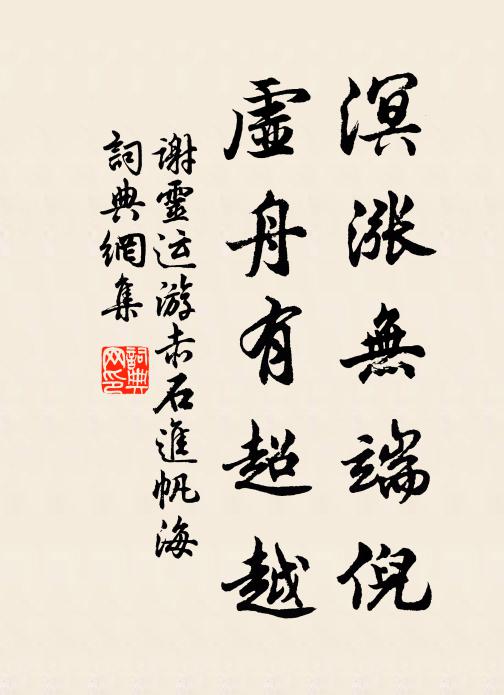 溟漲無端倪
虛舟有超越
謝靈运游赤石進帆海
詞典網集
詞典网印